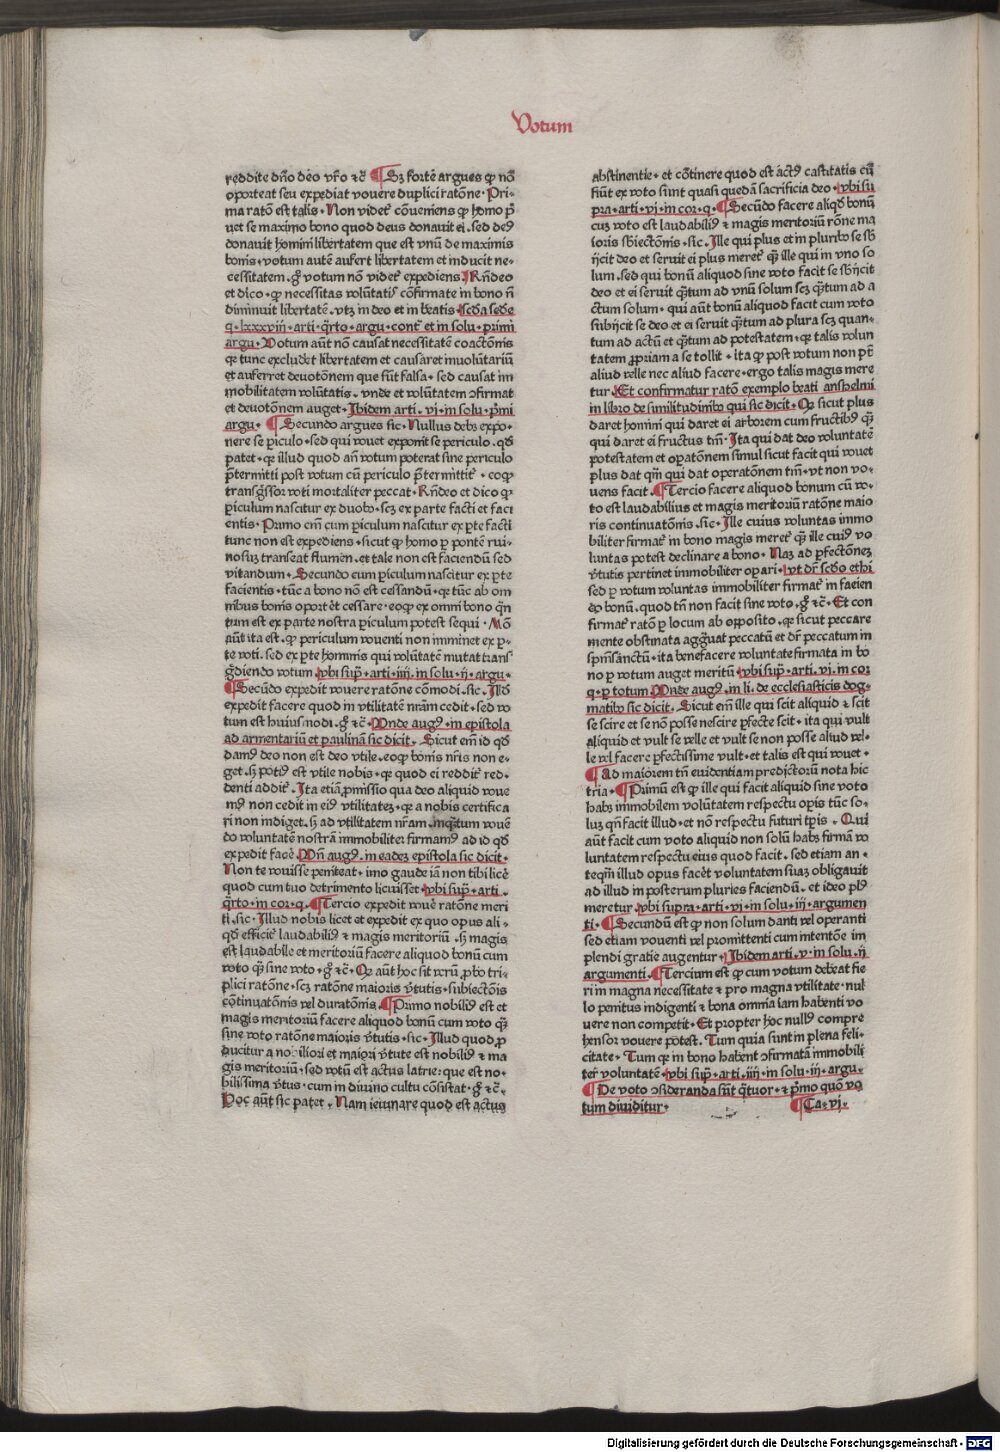 Votum
reddite dn̄o deo vr̄o ⁊c̄ ¶ Sꝫ forte argues ꝙ nō
oporteat seu expediat vouere duplici ratōne · Pri-
ma ratō est talis · Non videt᷑ cōueniens ꝙ homo p̄
uet se maximo bono quod deus donauit ei · sed deꝰ
donauit homini libertatem que est vnū de maximis
bonis · votum autē aufert libertatem et inducit ne-
cessitatem · gͦ votum nō videt᷑ expediens · Rn̄deo
et dico · ꝙ necessitas volūtatis cōfirmate in bono nō
diminuit libertatē · vtꝫ in deo et in beatis · scd̄a scd̄e
q · lxxxviij · arti · q̄rto · argu · cont᷑ et in solu · primi
argu · Votum aūt nō causat necessitatē coactōnis
qꝛ tunc excludet᷑ libertatem et causaret inuolūtariū
et auferret deuotōnem que sūt falsa · sed causat im
mobilitatem volūtatis · vnde et volūtatem ↄfirmat
et deuotōnem auget · Ibidem arti · vj · in solu · p̄mi
argu · ¶ Secundo argues sic · Nullus debꝫ expo-
nere se ꝑiculo · sed qui vouet exponit se periculo · qd̄
patet · qꝛ illud quod an̄ votum poterat sine periculo
p̄termitti post votum cū periculo p̄termittit᷑ · eoqꝫ
transgr̄ssor voti mortaliter peccat · Rn̄deo et dico ꝙ
ꝑiculum nascitur ex duobꝫ · scꝫ ex parte facti et faci
entis · Primo em̄ cum ꝑiculum nascitur ex ꝑte facti
tunc non est expediens · sicut ꝙ homo ꝑ pontē rui-
nosuꝫ transeat flumen · et tale non est faciendū sed
vitandum · Secundo cum ꝑiculum nascitur ex ꝑte
facientis · tūc a bono nō est cessandū · qꝛ tūc ab om
nibus bonis oportēt cessare · eoqꝫ ex omni bono qn̄
tum est ex parte nostra ꝑiculum potest sequi · Mō
aūt ita est · ꝙ periculum vouenti non imminet ex ꝑ-
te voti · sed ex ꝑte hominis qui volūtatē mutat trans
grediendo votum · vbi sup̄ · arti · iiij · in solu · ij · argu ·
¶ Secūdo expedit vouere ratōne cōmodi · sic · Illd̄
expedit facere quod in vtilitatē nr̄am cedit · sed vo
tum est huiusmodi · gͦ ⁊c̄ · Vnde augꝰ · in epistola
ad armentariū et paulinā sic dicit · Sicut em̄ id qd̄
damꝰ deo non est deo vtile · eoqꝫ bonis nr̄is non e-
get · sꝫ potiꝰ est vtile nobis · qꝛ quod ei reddit᷑ red-
denti addit᷑ · Ita etiā ꝓmissio qua deo aliquid voue
mꝰ non cedit in eiꝰ vtilitateꝫ · qꝛ a nobis certifica
ri non indiget · sꝫ ad vtilitatem nr̄am · inqꝫtum vouē
do voluntatē nostrā immobiliter firmamꝰ ad id qd̄
expedit facē · Vn̄ augꝰ · in eadeꝫ epistola sic dicit ·
Non te vouisse peniteat · imo gaude iā non tibi licē
quod cum tuo detrimento licuisset · vbi sup̄ · arti ·
q̄rto · in cor · q · ¶ Tercio expedit vouē ratōne meri
ti · sic · Illud nobis licet et expedit ex quo opus ali-
qd̄ efficit᷑ laudabiliꝰ ⁊ magis meritoriū · sꝫ magis
est laudabile et meritoriū facere aliquod bonū cum
voto qꝫ̄ sine voto · gͦ ⁊c̄ · Qꝛ aūt hoc sit verū ꝓbo tri-
plici ratōne · scꝫ ratōne maioris v̄tutis · subiectōis
cōtinuatōnis vel duratōnis · ¶ Primo nobiliꝰ est et
magis meritoriū facere aliquod bonū cum voto qꝫ̄
sine voto ratōne maioris v̄tutis · sic · Illud quod ꝓ
ducitur a nobiliori et maiori v̄tute est nobiliꝰ ⁊ ma
gis meritoriū · sed votū est actus latrie · que est no-
bilissima v̄tus · cum in diuino cultu cōsistat · gͦ ⁊c̄ ·
Hoc aūt sic patet · Nam ieiunare quod est actus
abstinentie · et cōtinere quod est actꝰ castitatis cū
fiūt ex voto sunt quasi quedā sacrificia deo · vbi su
pra · arti · vj · in cor · q · ¶ Secūdo facere aliqd̄ bonū
cuꝫ voto est laudabiliꝰ ⁊ magis meritoriū rōne ma
ioris sb̄iectōnis · sic · Ille qui plus et in pluribꝫ se sb̄
ijcit deo et seruit ei plus meret᷑ qꝫ̄ ille qui in vno so
lum · sed qui bonū aliquod sine voto facit se sb̄ijcit
deo et ei seruit qꝫ̄tum ad vnū solum scꝫ qꝫ̄tum ad a
ctum solum · qui aūt bonū aliquod facit cum voto
subijcit se deo et ei seruit qꝫ̄tum ad plura scꝫ quan-
tum ad actū et qꝫ̄tum ad potestatem · qꝛ talis volun
tatem ꝓpriam a se tollit · ita ꝙ post votum non pōt
aliud velle nec aliud facere · ergo talis magis mere
tur · Et confirmatur ratō exemplo beati anshelmi
in libro de similitudinibꝫ qui sic dicit · Qꝛ sicut plus
daret homini qui daret ei arborem cum fructibꝫ qꝫ̄
qui daret ei fructus tm̄ · Ita qui dat deo voluntatē
potestatem et oꝑatōnem simul sicut facit qui vouet
plus dat qꝫ̄ qui dat operatōnem tm̄ · vt non vo-
uens facit · ¶ Tercio facere aliquod bonum cū vo-
to est laudabilius et magis meritoriū ratōne maio
ris continuatōnis · sic · Ille cuius voluntas immo
biliter firmat᷑ in bono magis meret᷑ qꝫ̄ ille cuiꝰ vo
luntas potest declinare a bono · Naꝫ ad ꝑfectōneꝫ
v̄tutis pertinet immobiliter oꝑari · vt dr̄ scd̄o ethi
sed ꝑ votum voluntas immobiliter firmat᷑ in facien
do bonū · quod tn̄ non facit sine voto · gͦ ⁊c̄ · Et con
firmat᷑ ratō ꝑ locum ab opposito · qꝛ sicut peccare
mente obstinata aggrauat peccatū et dr̄ peccatum in
spm̄sanctū · ita benefacere voluntate firmata in bo
no ꝑ votum auget meritū · vbi sup̄ · arti · vj · in cor
q · ꝑ totum · Vnde augꝰ · in li · de ecclesiasticis dog-
matibꝫ sic dicit · Sicut em̄ ille qui scit aliquid ⁊ scit
se scire et se nō posse nescire ꝑfecte scit · ita qui vult
aliquid et vult se velle et vult se non posse aliud vel-
le vel facere ꝑfectissime vult · et talis est qui vouet ·
¶ Ad maiorem tn̄ euidentiam predictorū nota hic
tria · ¶ Primū est ꝙ ille qui facit aliquid sine voto
habꝫ immobilem volūtatem respectu oꝑis tūc so-
luꝫ qn̄ facit illud · et nō respectu futuri tꝑis · Qui
aūt facit cum voto aliquid non solū habꝫ firmā vo
luntatem respectu eius quod facit · sed etiam an-
teqꝫ̄ illud opus facēt voluntatem suaꝫ obligauit
ad illud in posterum pluries faciendū · et ideo plꝰ
meretur · vbi supra · arti · vj · in solu · iij · argumen
ti · ¶ Secundū est ꝙ non solum danti vel operanti
sed etiam vouenti vel promittenti cum intentōe im
plendi gratie augentur · Ibidem arti · v · in solu · ij
argumenti · ¶ Tercium est ꝙ cum votum debeat fie
ri in magna necessitate ⁊ pro magna vtilitate · nul
lo penitus indigenti ⁊ bona omnia iam habenti vo
uere non competit · Et propter hoc nullꝰ compre
hensor vouere potest · Tum quia sunt in plena feli-
citate · Tum qꝛ in bono habent ↄfirmatā immobili
ter voluntatē · vbi sup̄ · arti · iiij · in solu · iij · argu ·
¶ De voto ↄsideranda sūt q̄tuor · ⁊ p̄mo quō vo
tum diuiditur · ¶ Ca · vj ·
Digitalisierung gefördert durch die Deutsche Forschungsgemeinschaft - DFG